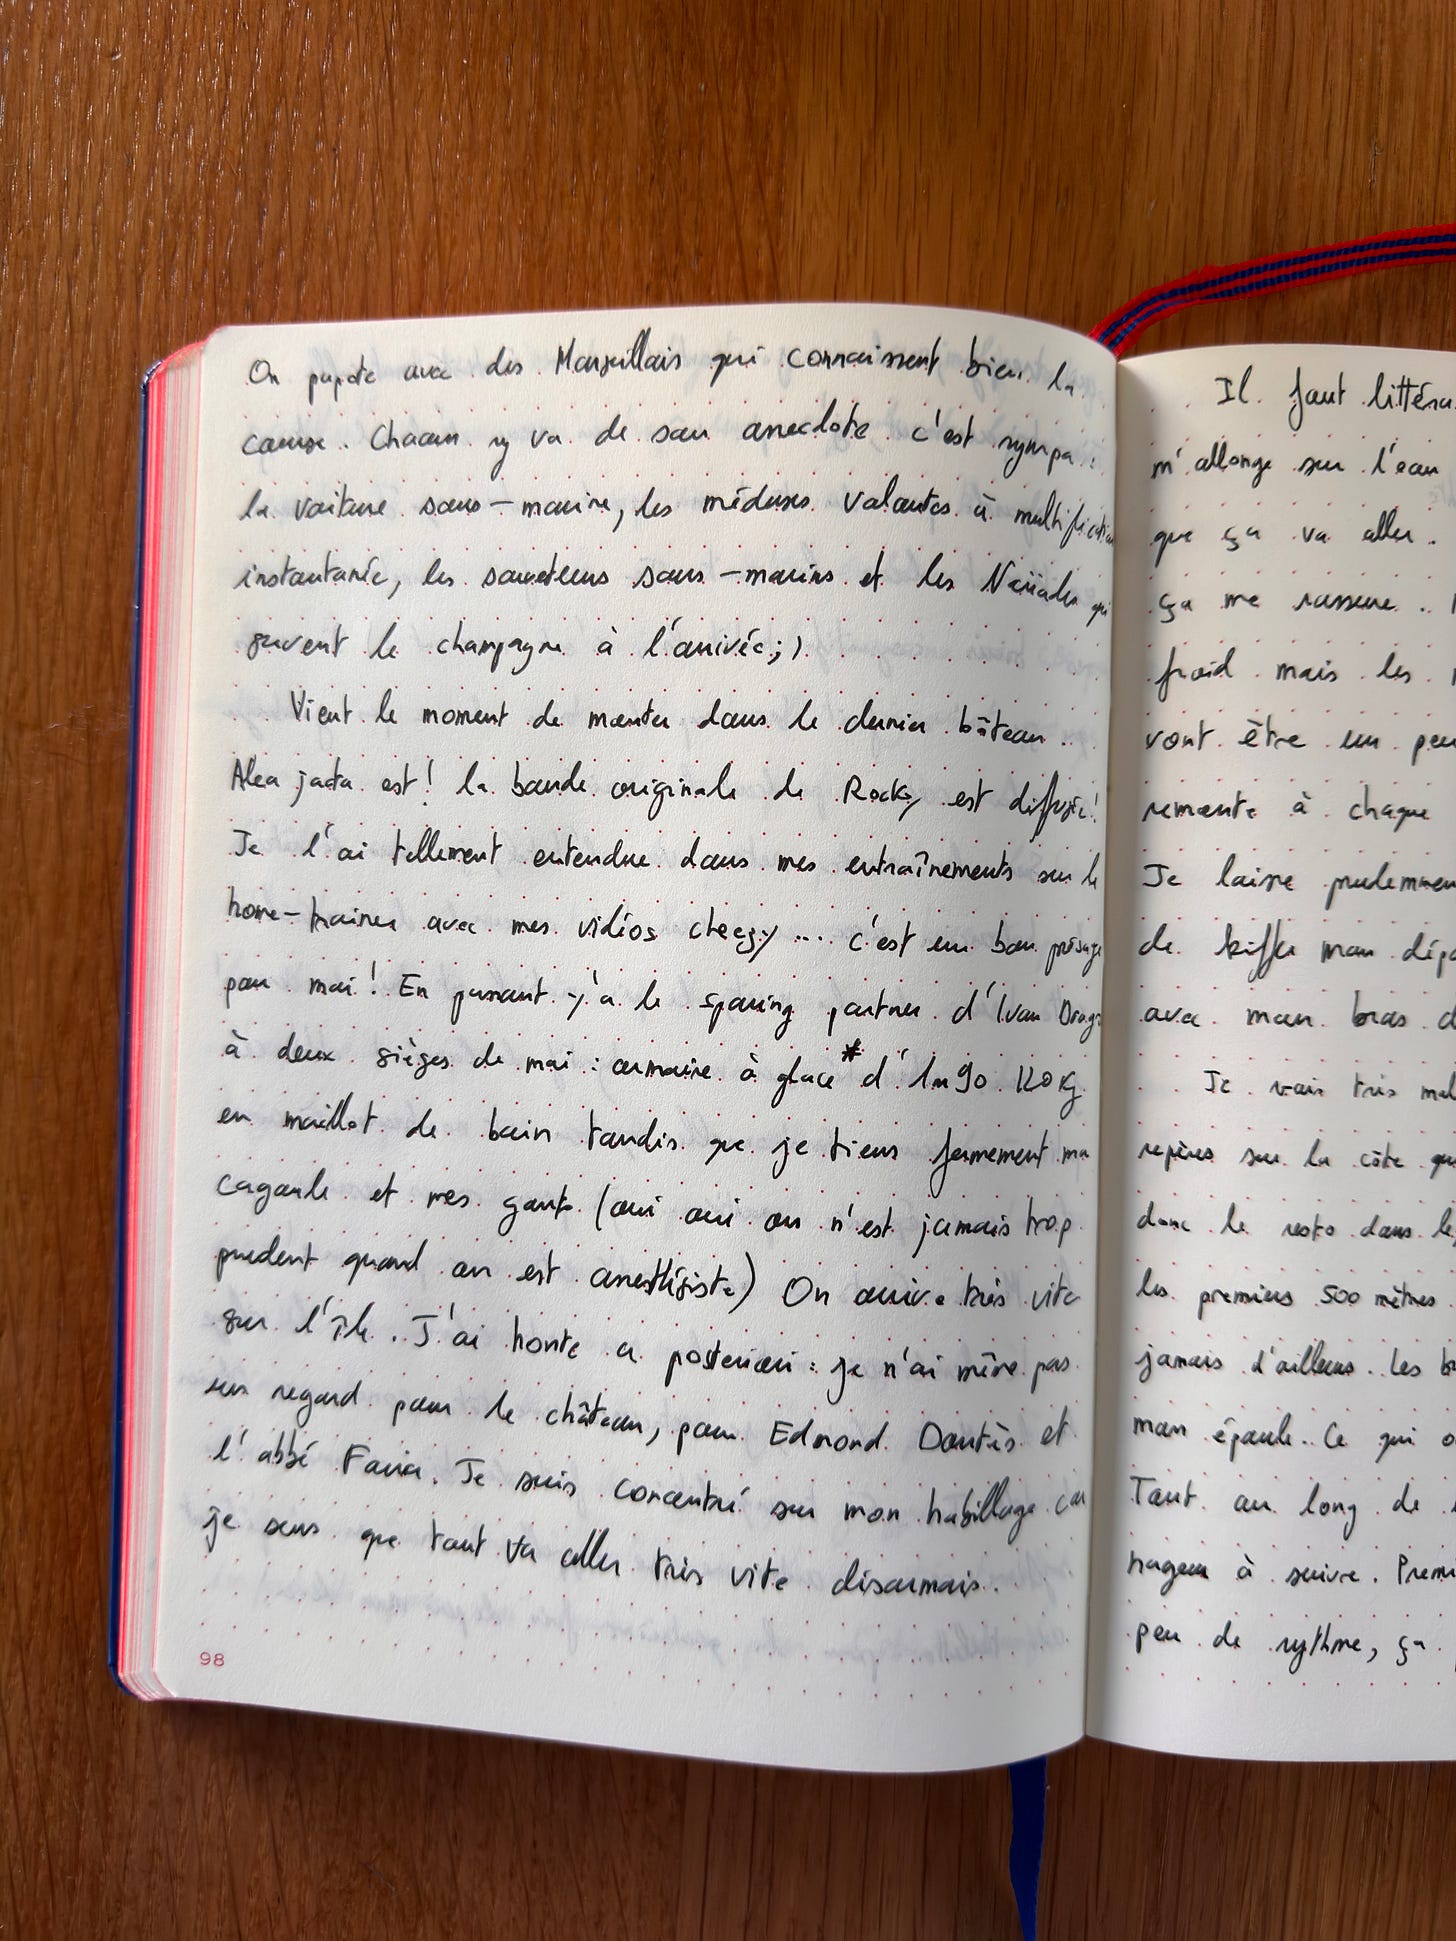 On papote avec des Marseillais qui connaissent bien la
course. Chacun y va de son anecdote c'est sympa :
la voiture sous-marine, les méduses volantes à multiplication
instantanée, les sauveteurs sous-marins et les Naïades qui
servent le champagne à l'arrivée ;)
Vient le moment de monter dans le dernier bâteau..
Alea jacta est! la bande originale de Rocky est diffusée!
Je l'ai tellement entendue dans mes entraînements sur le
home-trainer avec mes vidéos cheesy .... c'est un bon présage
pour moi! En passant y'a le sparing partner d'Ivan Drago
à deux sièges de moi : armoire à glace* d'1m90 120kg
en maillot de bain tandis que je tiens fermement ma
cagoule et mes gants (oui oui on n'est jamais trop
prudent quand on est anesthésiste) On arrive très vite
sur l'île. J'ai honte a posteriori : je n'ai même pas
un regard pour le château, pour Edmond Dantès et
l'abbé Faria. Je suis concentré sur mon habillage car
je sens que tout va aller très vite désormais.
98
Il faut
m'allonge sur l'eau
que ça va aller.
ça me rassure ..
froid mais les
vont être un peu
remonte à chaque
Je laisse
de kiffer mon
avec mon bras
Je vais très
repères sur la côte
donc le reste dans
les premiers 500 mètres
jamais d'ailleurs. Les
mon épaule. Ce qui
Tout au long de
nageur à suivre.
peu de rythme, ça